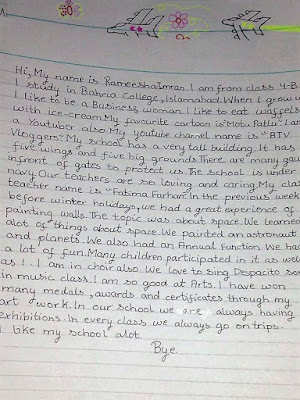 Hi, My name is Rameesha Imran. I am from class 4-B.
I study in Bahria College, Islamabad. When I grow u
I like to be a Business woman. I like to eat waffels
with ice-cream. My favourite cartoon is "Motu Patlu". I am
a Youtuber also. My youtube channel name is "BTV
Vloggers". My school has a very tall building. It has
five wings and five big grounds. There are many gau
infront of gates to protect us. The school is under
navy. Our teachers are so loving and caring. My clas
teacher name is "Fatima Farhan". In the previous week
before winter holidays, we had a great experience of
painting walls. The topic was about space. We learned
alot of things about space. We painted an astronaut
and planets. We also had an Annual Function. We had
a lot of fun. Many children participated in it as well
as I. I am in choir also. We love to sing Despacito son
in music class. I am so good at Arts. I have won
many medals, awards and certificates through my
art work. In our school we are always having
exhibitions. In every class we always go on trips.
I like my school alot.
Bye.